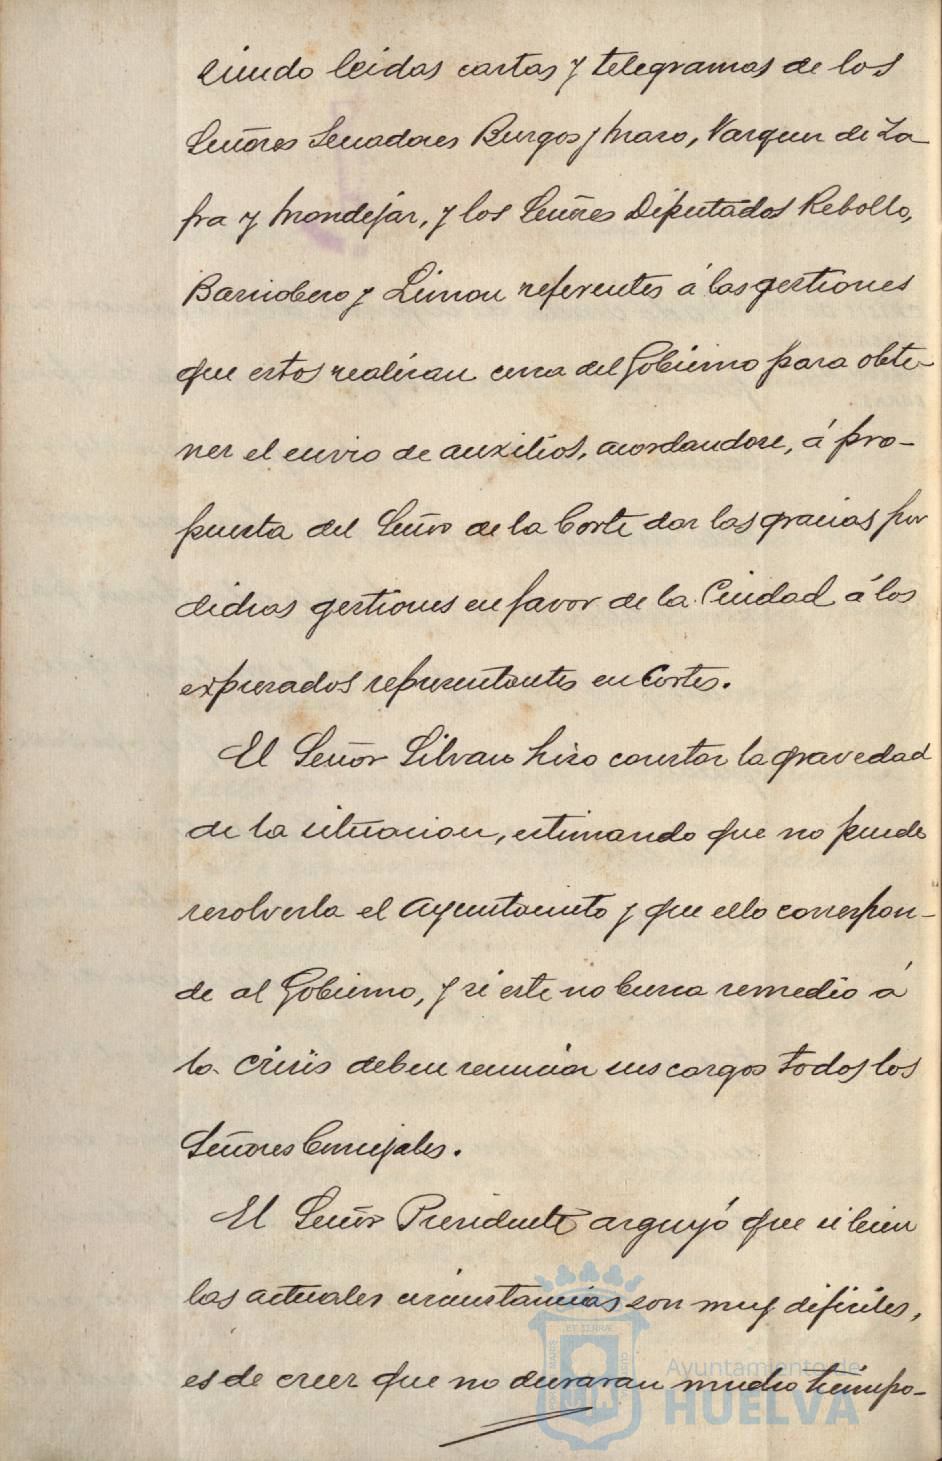 siendo leidas cartas y telegramas de los
Señores Senadores Burgos y Mazo, Marques de Za
fra y Mondejar, y los Señores Diputados Rebollo,
Barriobero y Limon referentes á las gestiones
que estos realizan cerca del Gobierno para obte-
ner el envio de auxilios, acordandose, á pro-
puesta del Señor de la Corte dar las gracias por
dichas gestiones en favor de la Ciudad á los
expresados representantes en Cortes.
El Señor Silvan hizo constar la gravedad
de la situacion, estimando que no puede
resolverla el Ayuntamiento y que ello correspon-
de al Gobierno, y si este no busca remedio á
la crisis deben renunciar sus cargos todos los
Señores Concejales.
El Señor Presidente arguyó que si bien
las actuales circunstancias son muy dificiles,
es de creer que no duraran mucho tiempo-
Ayuntamiento de
HUELVA